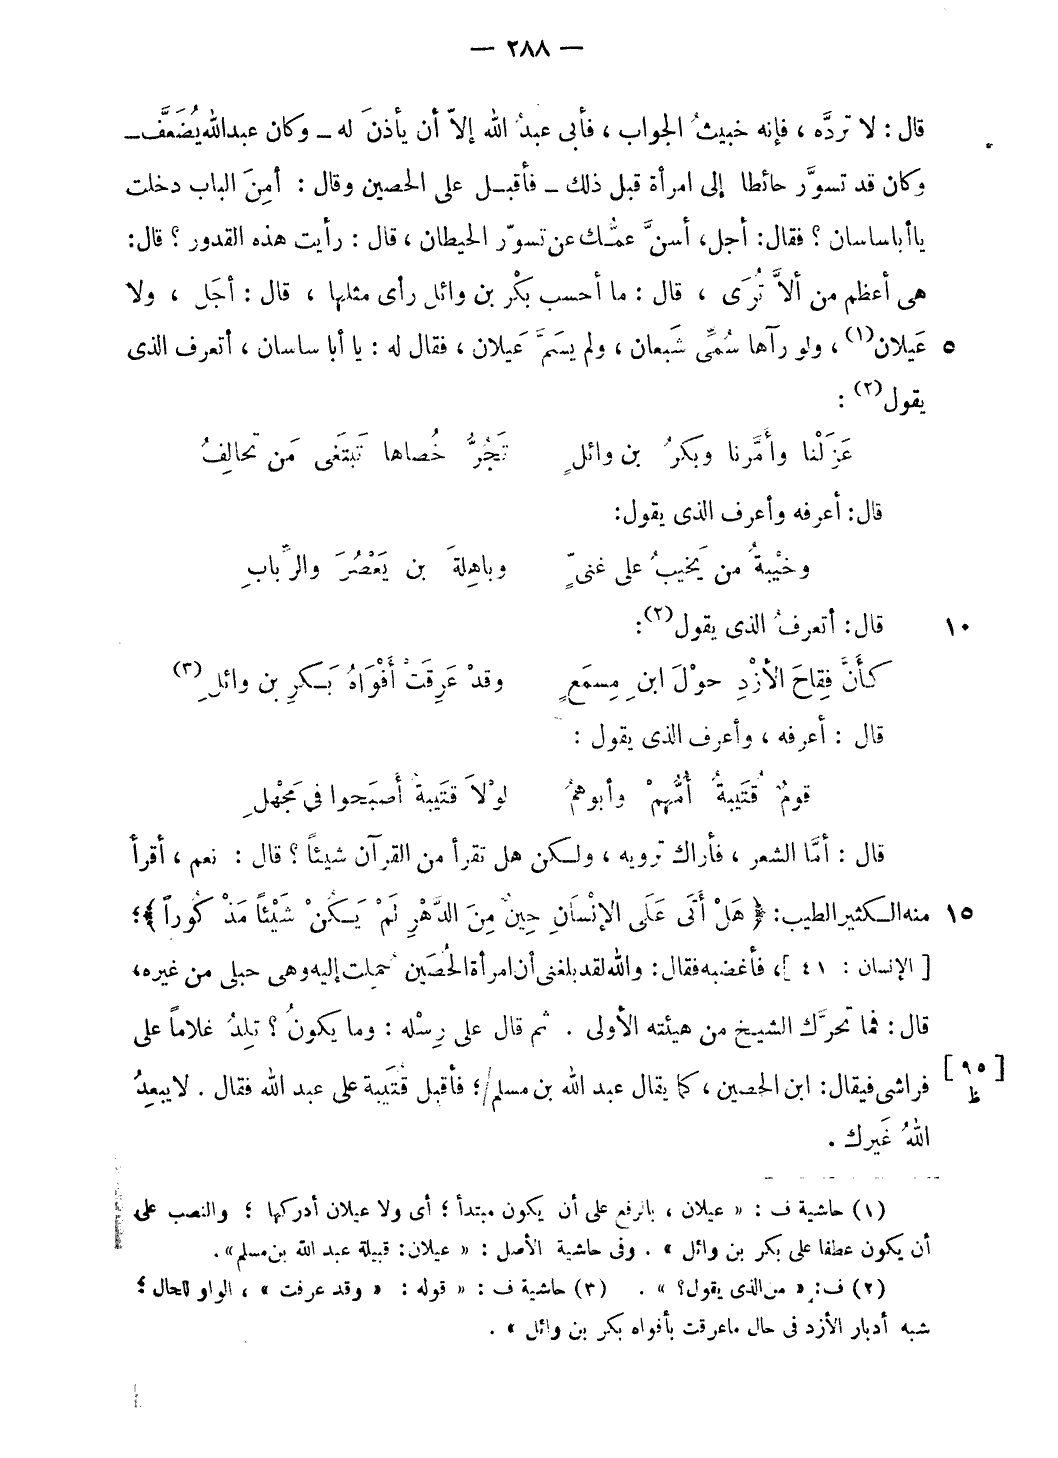 — ٢٨٨ —
قال : لا تردَّه ، فإنه خبيثُ الجواب ، فأبى عبدُ الله إلاّ أن يأذنَ له ــ وكان عبدالله يُضَعَّف ــ
وكان قد تسوَّر حائطا إلى امرأة قبل ذلك ــ فأقبـل على الحصين وقال : أمِنَ الباب دخلت
ياأباساسان ؟ فقال : أجل ، أسنَّ عمُّك عن تسوّر الحيطان ، قال : رأيت هذه القدور ؟ قال :
هى أعظم من ألاَّ تُرَى ، قال : ما أحسب بكْر بن وائل رأى مثلها ، قال : أجَل ، ولا
٥ عَيلان(١) ، ولو رآها سُمِّى شَبعان ، ولم يسَمَّ عَيلان ، فقال له : يا أبا ساسان ، أتعرف الذى
يقول(٢) :
عَزَلْنا وأمَّرنا وبَكرُ بن وائلٍ تَجُرُّ خُصاها تَبتَغى مَن تحالِفُ
قال : أعرفه وأعرف الذى يقول :
وخَيْبةُ من يَخيبُ على غنىّ وباهِلةَ بن يَعْصُرَ والرِّبابِ
١٠ قال : أتعرفُ الذى يقول(٢) :
كأنَّ فِقاحَ الأزْدِ حوْلَ ابن مِسمَعٍ وقدْ عَرِقَتْ أفْوَاهُ بَـكرِ بن وائلِ(٣)
قال : أعرفه ، وأعرف الذى يقول :
قومٌ قُتَيبةُ أُمُّهمْ وأبوهمُ لوْلاَ قتَيبةُ أصبَحوا فى مَجْهلِ
قال : أمَّا الشعر ، فأراك ترويه ، ولـكن هل تقرأ من القرآن شيئاً ؟ قال : نعم ، أقرأ
١٥ منه الـكثير الطيب : ﴿ هَلْ أَتَى عَلَى الإنْسَانِ حِينٌ مِنَ الدَّهْرِ لَمْ يَـكُنْ شَيْئاً مَذْكُوراً ﴾ ؛
[ الإنسان : ١٤ ] ، فأغضبه فقال : والله لقد بلغنى أن امرأة الحُصَين حملت إليه وهى حبلى من غيره ،
قال : فما تحرَّك الشيـخ من هيئته الأولى . ثم قال على رِسْله : وما يكونُ ؟ تلِدُ غلاماً على
فراشى فيقال : ابن الحصين ، كما يقال عبد الله بن مسلم/ ؛ فأقبل قُتَيبة على عبد الله فقال . لا يبعِدُ [ ٩٥ ظ ]
اللهُ غَيرك .
(١) حاشية ف : « عيلان ، بالرفع على أن يكون مبتدأ ؛ أى ولا عيلان أدركها ؛ والنصب على
أن يكون عطفا على بكر بن وائل » . وفى حاشية الأصل : « عيلان : قبيلة عبد الله بن مسلم » .
(٢) ف : « من الذى يقول ؟ » . (٣) حاشية ف : « قوله : « وقد عرقت » ، الواو للحال ؛
شبه أدبار الأزد فى حال ماعرقت بأفواه بكر بن وائل » .